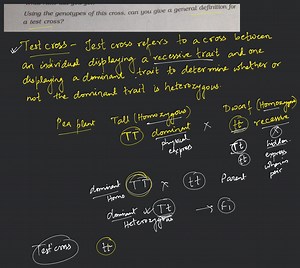 Using the genotypes of this cross, can you give a general definition for
a test cross?
Test cross - Test cross refers to a cross between
an individual displaying a recessive trait and one
displaying a dominant trait to determine whether or
not the dominant trait is heterozygous.
Pea plant Tall (Homozygous) Dwarf (Homozygous)
TT dominant × tt recessive
physical expres
Tt hidden
tt express
when in pair
dominant Homo TT × tt Parent
dominant Tt → F1
Heterozygous
Test cross tt